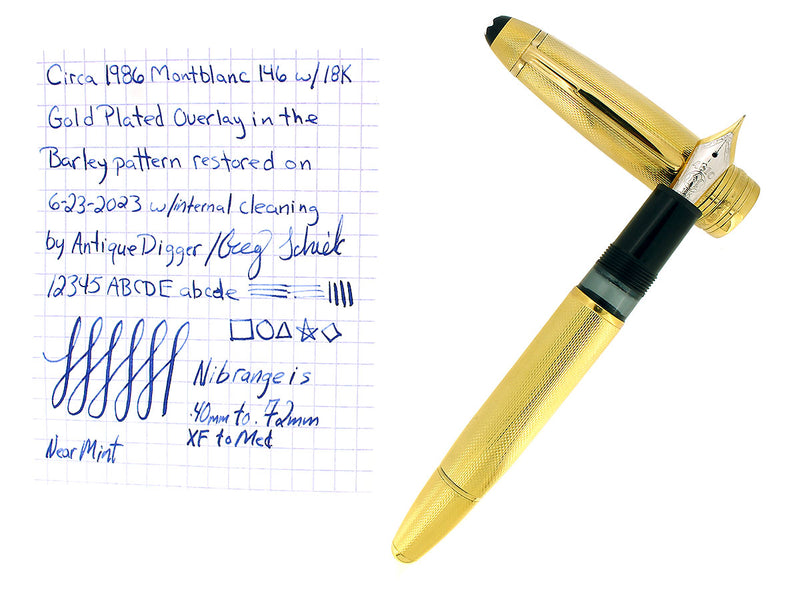 Circa 1986 Montblanc 146 w/ 18K
Gold Plated Overlay in the
Barley pattern restored on
6-23-2023 w/internal cleaning
by Antique Digger / Greg Schiek
12345 ABCDE abcde
Nib range is
.40mm to .72mm
XF to Med
Near Mint